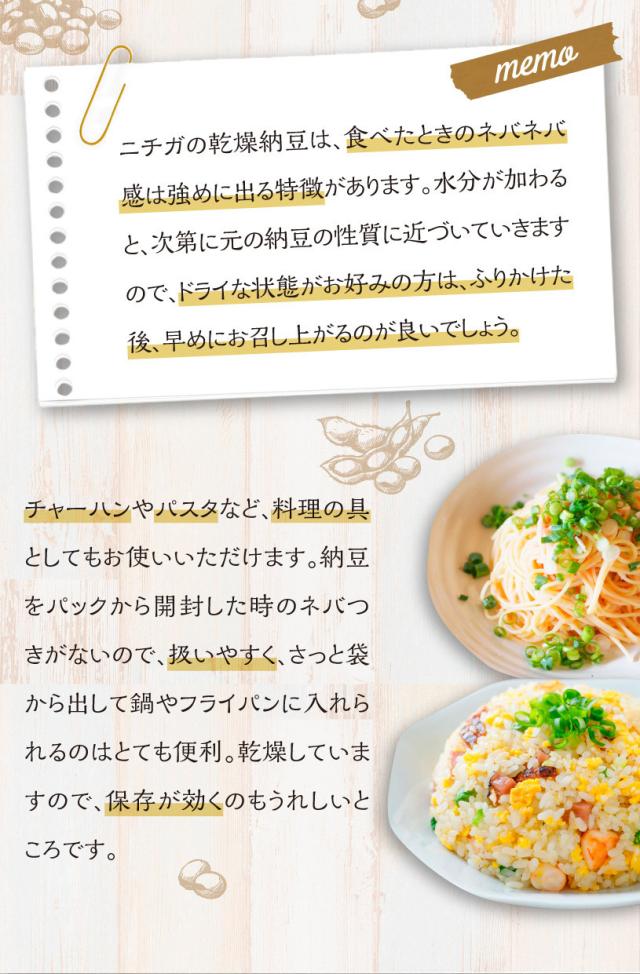 memo
ニチガの乾燥納豆は、食べたときのネバネバ
感は強めに出る特徴があります。水分が加わる
と、次第に元の納豆の性質に近づいていきます
ので、ドライな状態がお好みの方は、ふりかけた
後、早めにお召し上がるのが良いでしょう。
チャーハンやパスタなど、料理の具
としてもお使いいただけます。納豆
をパックから開封した時のネバつ
きがないので、扱いやすく、さっと袋
から出して鍋やフライパンに入れら
れるのはとても便利。乾燥していま
すので、保存が効くのもうれしいと
ころです。